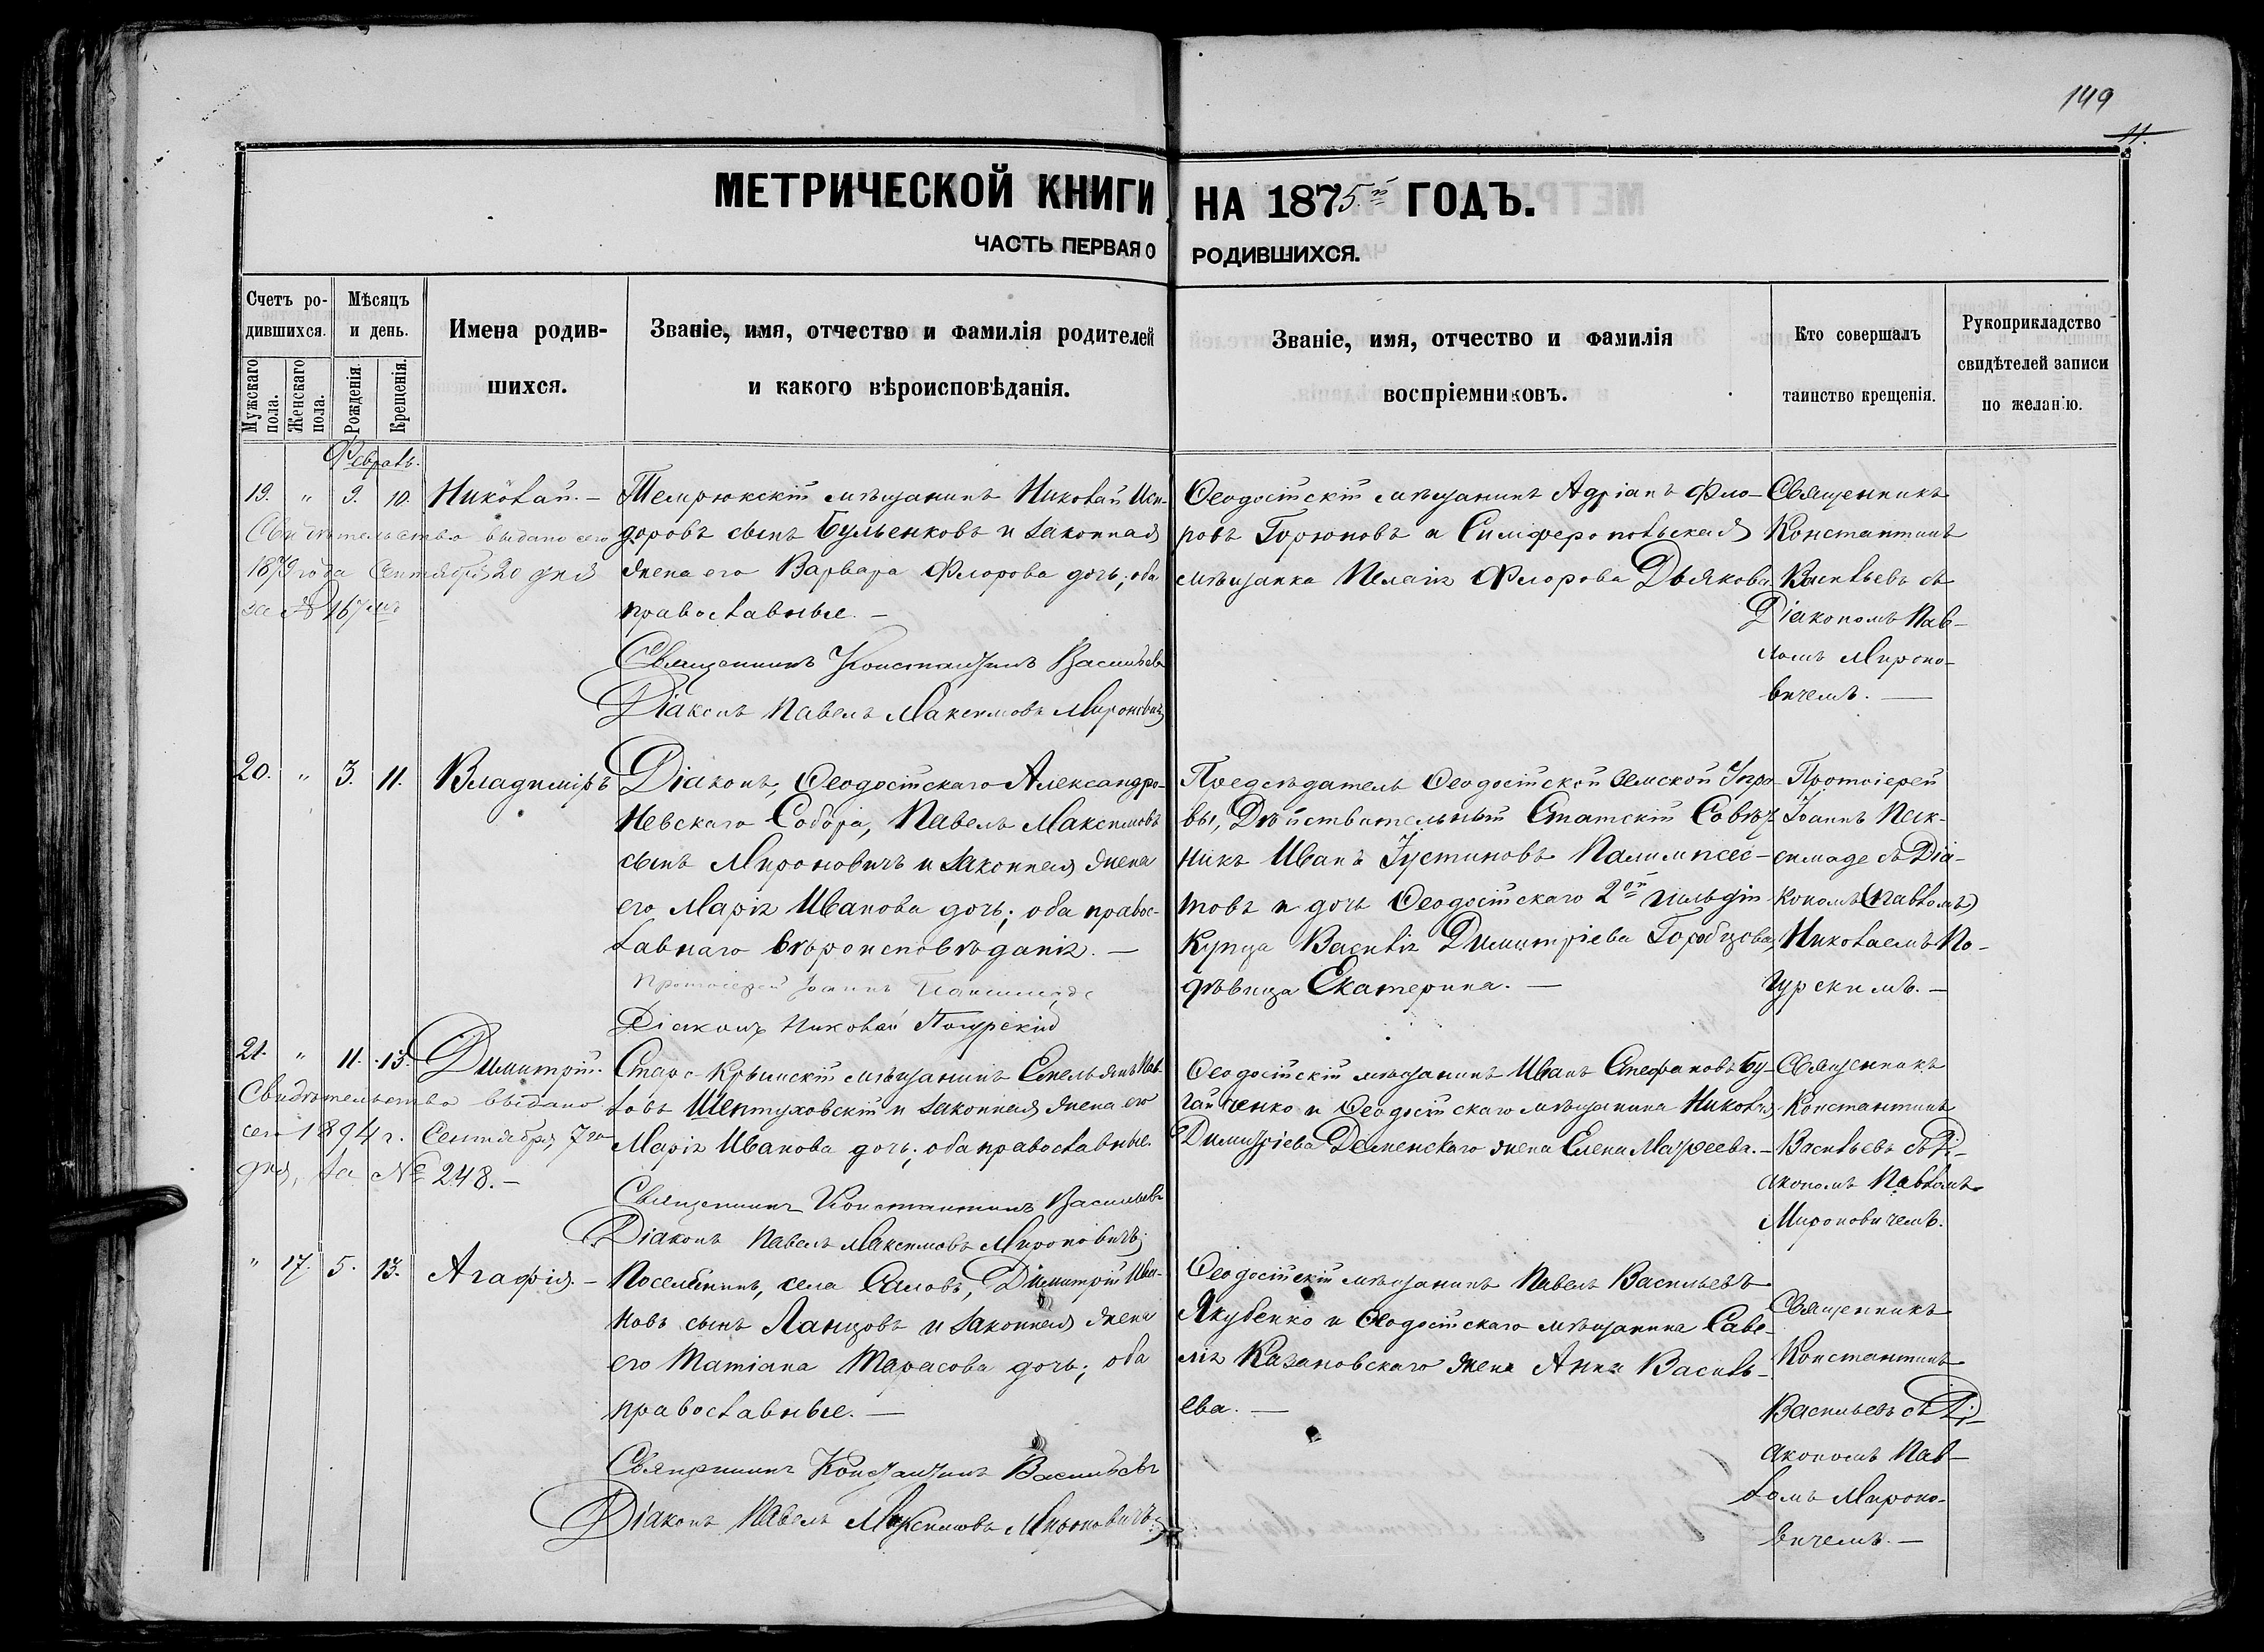 149
11.
МЕТРИЧЕСКОЙ КНИГИ НА 1875й ГОДЪ.
ЧАСТЬ ПЕРВАЯ О РОДИВШИХСЯ.
Счетъ ро-
дившихся.
Мужскаго пола.
Женскаго пола.
Мѣсяцъ
и день.
Рожденія.
Крещенія.
Имена родив-
шихся.
Званіе, имя, отчество и фамилія родителей
и какого вѣроисповѣданія.
Званіе, имя, отчество и фамилія
воспріемниковъ.
Кто совершалъ
таинство крещенія.
Рукоприкладство
свидѣтелей записи
по желанію.
Февраль.
19. " 9. 10. Николай. —
Свидѣтельство выдано сего
1879 года Сентября 20 дня
за № 167мъ
Темрюкскій мѣщанинъ Николай Иси-
доровъ сынъ Бульенковъ и законная
жена его Варвара Флорова дочь; оба
православные. —
Священникъ Константинъ Васильевъ
Діаконъ Павелъ Максимовъ Мироновичъ
Ѳеодосійскій мѣщанинъ Адріанъ Фло-
ровъ Горюновъ и Симферопольская
мѣщанка Пелагія Флорова Дьякова
Священникъ
Константинъ
Васильевъ съ
Діакономъ Пав-
ломъ Мироно-
вичемъ. —
20. " 3. 11. Владиміръ
Діаконъ, Ѳеодосійскаго Александро-
Невскаго Собора, Павелъ Максимовъ
сынъ Мироновичъ и законная жена
его Марія Иванова дочь; оба правос-
лавнаго вѣроисповѣданія. —
Протоіерей Іоаннъ
Діаконъ Николай Погурскій
Предсѣдатель Ѳеодосійской Земской Упра-
вы, Дѣйствительный Статскій Совѣт-
никъ Иванъ Іустиновъ Палимпсес-
товъ и дочь Ѳеодосійскаго 2ой гильдіи
Купца Василія Димитріева Горобцова,
дѣвица Екатерина. —
Протоіерей
Іоаннъ
съ Діа-
кономъ
Николаемъ По-
гурскимъ. —
21. " 11. 13. Димитрій.
Свидѣтельство выдано
сего 1894 г. Сентября 7го
дня, за № 248. —
Старо-Крымскій мѣщанинъ Емельянъ Пав-
ловъ Шептуховскій и законная жена его
Марія Иванова дочь; оба православные.
Священникъ Константинъ Васильевъ
Діаконъ Павелъ Максимовъ Мироновичъ
Ѳеодосійскій мѣщанинъ Иванъ Стефановъ Бу-
гаенко и Ѳеодосійскаго мѣщанина Николая
Димитріева жена Елена . —
Священникъ
Константинъ
Васильевъ съ Ді-
акономъ Павломъ
Мироновичемъ.
" 17. 5. 13. Агафія. —
Поселянинъ, села Саловъ, Димитрій Ива-
новъ сынъ Ланцовъ и законная жена
его Татіана Тарасова дочь; оба
православные. —
Священникъ Константинъ Васильевъ
Діаконъ Павелъ Максимовъ Мироновичъ
Ѳеодосійскій мѣщанинъ Павелъ Васильевъ
Якубенко и Ѳеодосійскаго мѣщанина Саве-
лія Казановскаго жена Анна Василь-
ева. —
Священникъ
Константинъ
Васильевъ съ Ді-
акономъ Пав-
ломъ Мироно-
вичемъ. —